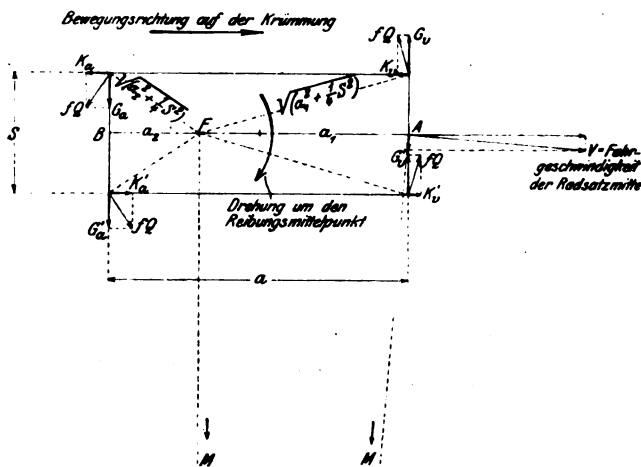 Bewegungsrichtung auf der Krümmung
fQ
G_v
K_a
K_v
√(a₂² + ¼ S²)
√(a₁² + ¼ S²)
S
fQ
G_a
F
B
a₂
a₁
A
G_v'
fQ
V = Fahr-
geschwindigkeit
der Radsatzmitte
K_a'
K_v'
Drehung um den
Reibungsmittelpunkt
G_a'
fQ
a
M
M